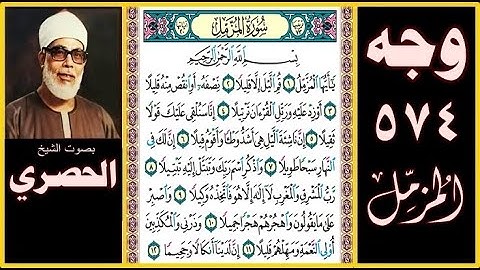 وجه
٥٧٤
المزمل
بصوت الشيخ
الحصري
سورة المزمل
بسم الله الرحمن الرحيم
يَٰٓأَيُّهَا ٱلْمُزَّمِّلُ ١ قُمِ ٱلَّيْلَ إِلَّا قَلِيلًا ٢ نِّصْفَهُۥٓ أَوِ ٱنقُصْ مِنْهُ قَلِيلًا
٣ أَوْ زِدْ عَلَيْهِ وَرَتِّلِ ٱلْقُرْءَانَ تَرْتِيلًا ٤ إِنَّا سَنُلْقِى عَلَيْكَ قَوْلًا
ثَقِيلًا ٥ إِنَّ نَاشِئَةَ ٱلَّيْلِ هِىَ أَشَدُّ وَطْـًٔا وَأَقْوَمُ قِيلًا ٦ إِنَّ لَكَ فِى
ٱلنَّهَارِ سَبْحًا طَوِيلًا ٧ وَٱذْكُرِ ٱسْمَ رَبِّكَ وَتَبَتَّلْ إِلَيْهِ تَبْتِيلًا ٨
رَّبُّ ٱلْمَشْرِقِ وَٱلْمَغْرِبِ لَآ إِلَٰهَ إِلَّا هُوَ فَٱتَّخِذْهُ وَكِيلًا ٩ وَٱصْبِرْ
عَلَىٰ مَا يَقُولُونَ وَٱهْجُرْهُمْ هَجْرًا جَمِيلًا ١٠ وَذَرْنِى وَٱلْمُكَذِّبِينَ
أُو۟لِى ٱلنَّعْمَةِ وَمَهِّلْهُمْ قَلِيلًا ١١ إِنَّ لَدَيْنَآ أَنكَالًا وَجَحِيمًا ١٢